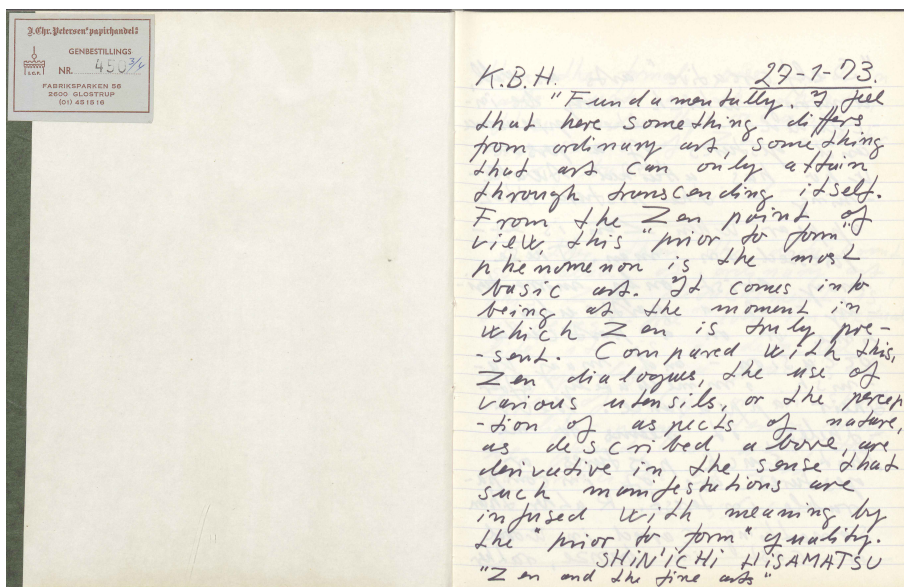 J. Chr. Petersens papirhandel A/S
GENBESTILLINGS
NR. 450 3/4
J.C.P.
FABRIKSPARKEN 56
2600 GLOSTRUP
(01) 451516
K.B.H. 27-1-73.
"Fundamentally, I feel
that here something differs
from ordinary art, something
that art can only attain
through transcending itself.
From the Zen point of
view, this "prior to form"
phenomenon is the most
basic art. It comes into
being at the moment in
which Zen is truly pre-
-sent. Compared with this,
Zen dialogues, the use of
various utensils, or the percep
-tion of aspects of nature,
as described above, are
derivative in the sense that
such manifestations are
infused with meaning by
the "prior to form" quality.
SHiN'iCHi HiSAMATSU
"Zen and the fine arts"